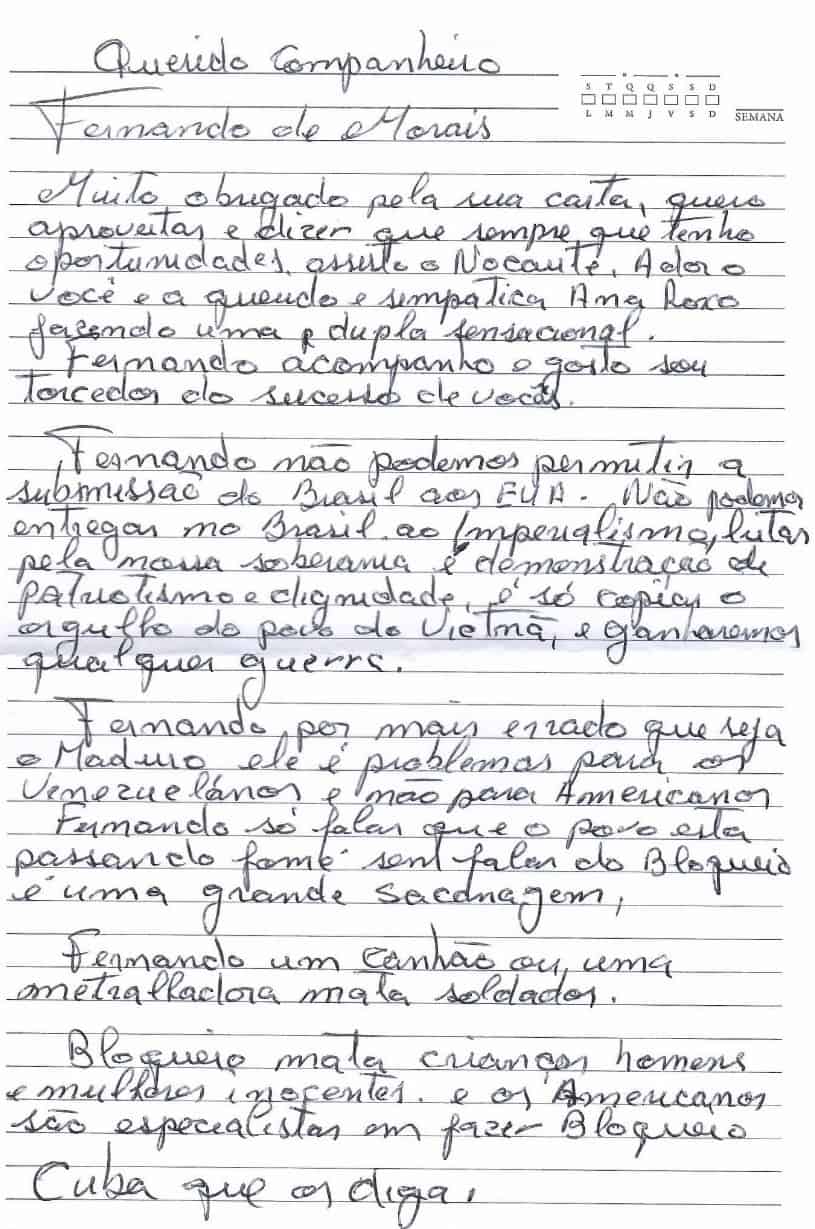 Querido Companheiro
S T Q Q S S D
L M M J V S D
SEMANA
Fernando de Morais
Muito obrigado pela sua carta, quero
aproveitar e dizer que sempre que tenho
oportunidades, assisto o Nocauté. Adoro
você e a querido e simpática Ana Roxo
fazendo uma dupla sensacional.
Fernando acompanho e gosto sou
torcedor do sucesso de vocês.
Fernando não podemos permitir a
submissão do Brasil aos EUA. Não podemos
entregar no Brasil ao Imperialismo, lutar
pela nossa soberania é demonstração de
patriotismo e dignidade, é só copiar o
orgulho do povo do Vietnã, e ganharemos
qualquer guerra.
Fernando, por mais errado que seja
o Maduro ele é problemas para os
Venezuelános e não para Americanos
Fernando só falar que o povo esta
passando fome sem falar do Bloqueio
é uma grande sacanagem,
Fernando um canhão ou uma
metralhadora mata soldados.
Bloqueio mata crianças homens
e mulheres inocentes. e os Americanos
são especialistas em fazer Bloqueio
Cuba que os diga.